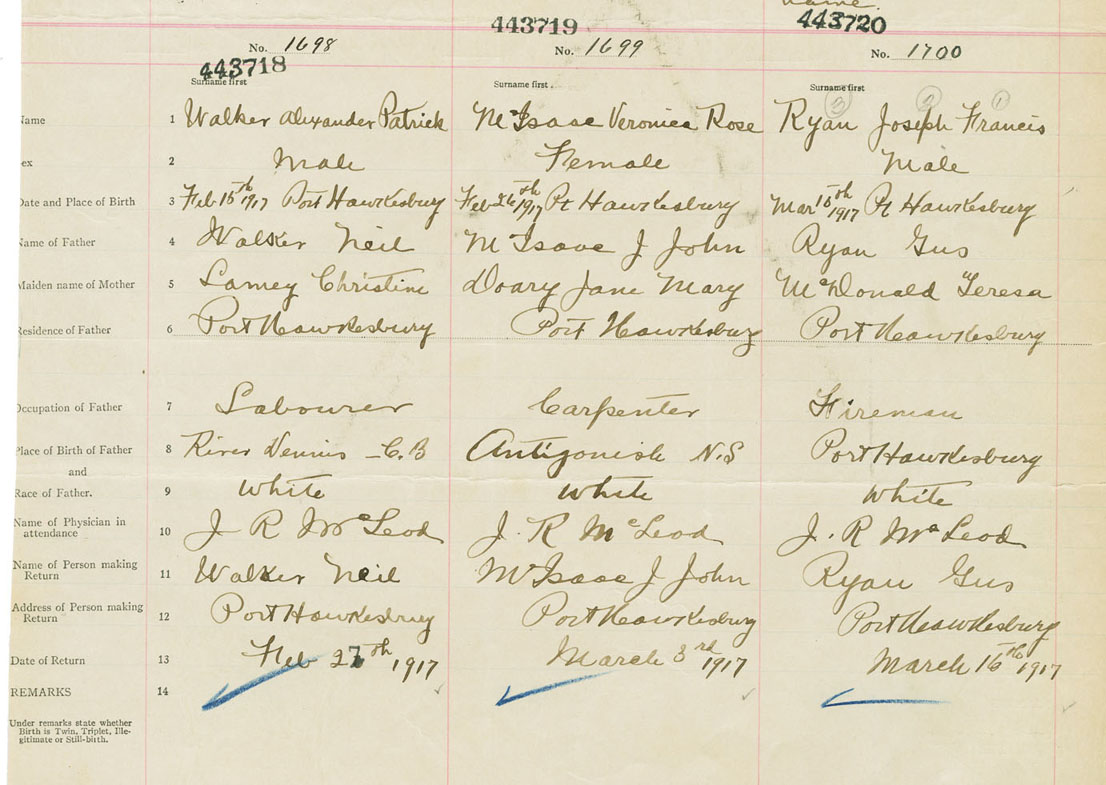 name.
443719
443720
No. 1698
No. 1699
No. 1700
443718
Surname first
Surname first
Surname first
3 2 1
Name 1 Walker Alexander Patrick McIsaac Veronica Rose Ryan Joseph Francis
ex 2 Male Female Male
Date and Place of Birth 3 Feb 15th 1917 Port Hawkesbury Feb 26th 1917 Pt Hawkesbury Mar 15th 1917 Pt Hawkesbury
Name of Father 4 Walker Neil McIsaac J John Ryan Gus
Maiden name of Mother 5 Lamey Christine Doary Jane Mary McDonald Teresa
Residence of Father 6 Port Hawkesbury Port Hawkesbury Port Hawkesbury
Occupation of Father 7 Labourer Carpenter Fireman
Place of Birth of Father 8 River Dennis - C.B Antigonish N.S Port Hawkesbury
and
Race of Father. 9 White White White
Name of Physician in
attendance 10 J R McLeod J. R McLeod J. R McLeod
Name of Person making
Return 11 Walker Neil McIsaac J John Ryan Gus
Address of Person making
Return 12 Port Hawkesbury Port Hawkesbury Port Hawkesbury
Date of Return 13 Feb 27th 1917 March 3rd 1917 March 16th 1917
REMARKS 14
Under remarks state whether
Birth is Twin, Triplet, Ille-
gitimate or Still-birth.